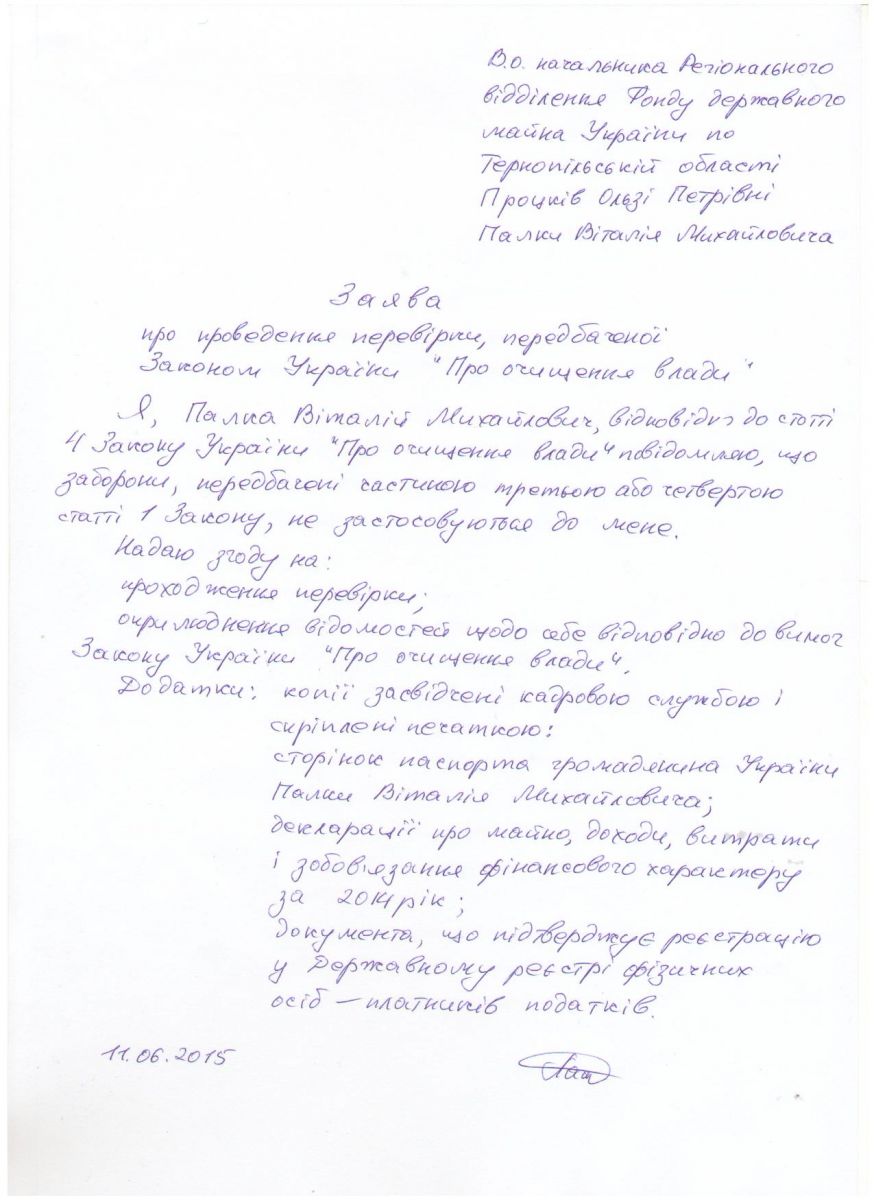 В.о. начальника Регіонального
відділення Фонду державного
майна України по
Тернопільській області
Процків Ользі Петрівні
Палки Віталія Михайловича
Заява
про проведення перевірки, передбаченої
Законом України "Про очищення влади"
Я, Палка Віталій Михайлович, відповідно до статті
4 Закону України "Про очищення влади" повідомляю, що
заборони, передбачені частиною третьою або четвертою
статті 1 Закону, не застосовуються до мене.
Надаю згоду на:
проходження перевірки;
оприлюднення відомостей щодо себе відповідно до вимог
Закону України "Про очищення влади".
Додатки: копії засвідчені кадровою службою і
скріплені печаткою:
сторінок паспорта громадянина України
Палки Віталія Михайловича;
декларації про майно, доходи, витрати
і зобов'язання фінансового характеру
за 2014 рік;
документа, що підтверджує реєстрацію
у Державному реєстрі фізичних
осіб – платників податків.
11.06.2015